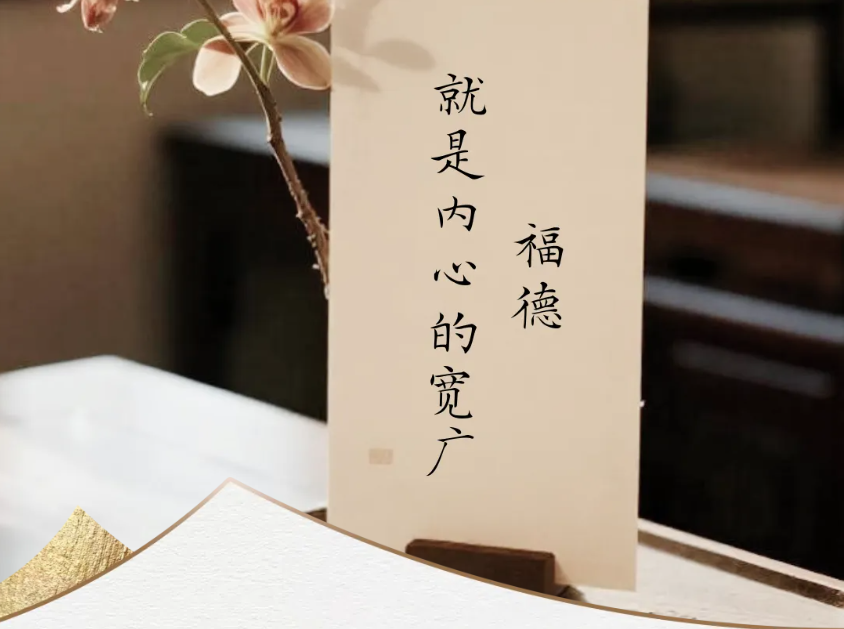 福德
就是内心的宽广